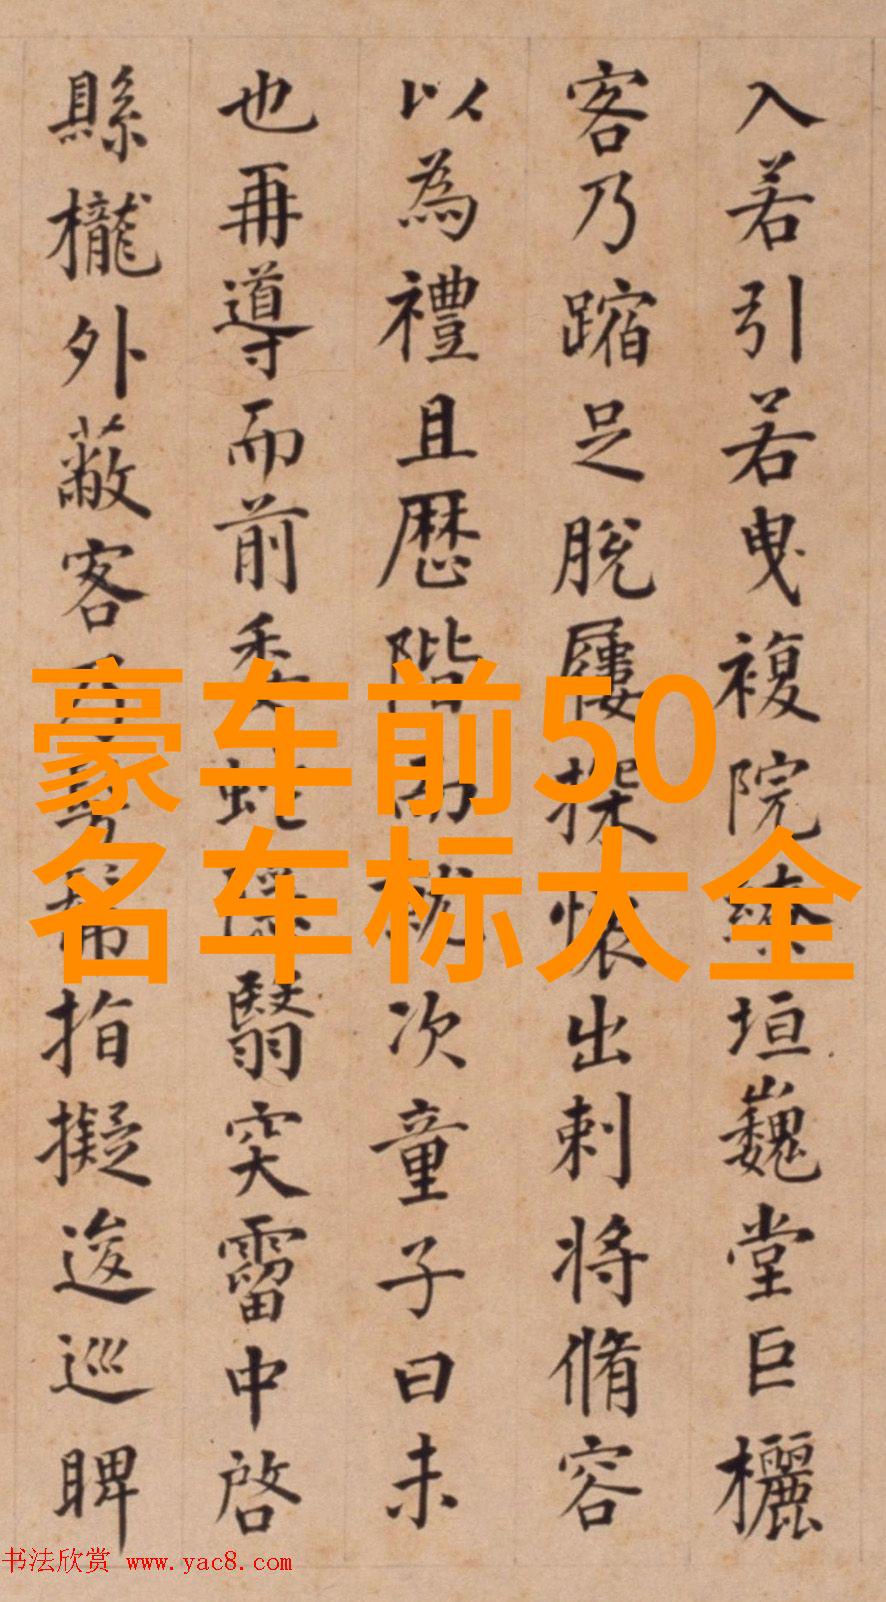 入若引若曳複院繚垣巍堂巨欐
客乃蹜足脫屨探懷出刺將脩容
以為禮且歷階而就次童子曰未
也再導而前委蛇隱翳突霤中啓
縣櫳外蔽客乃
指擬逡巡睥
豪车前50
名车标大全
书法欣赏 www.yac8.com